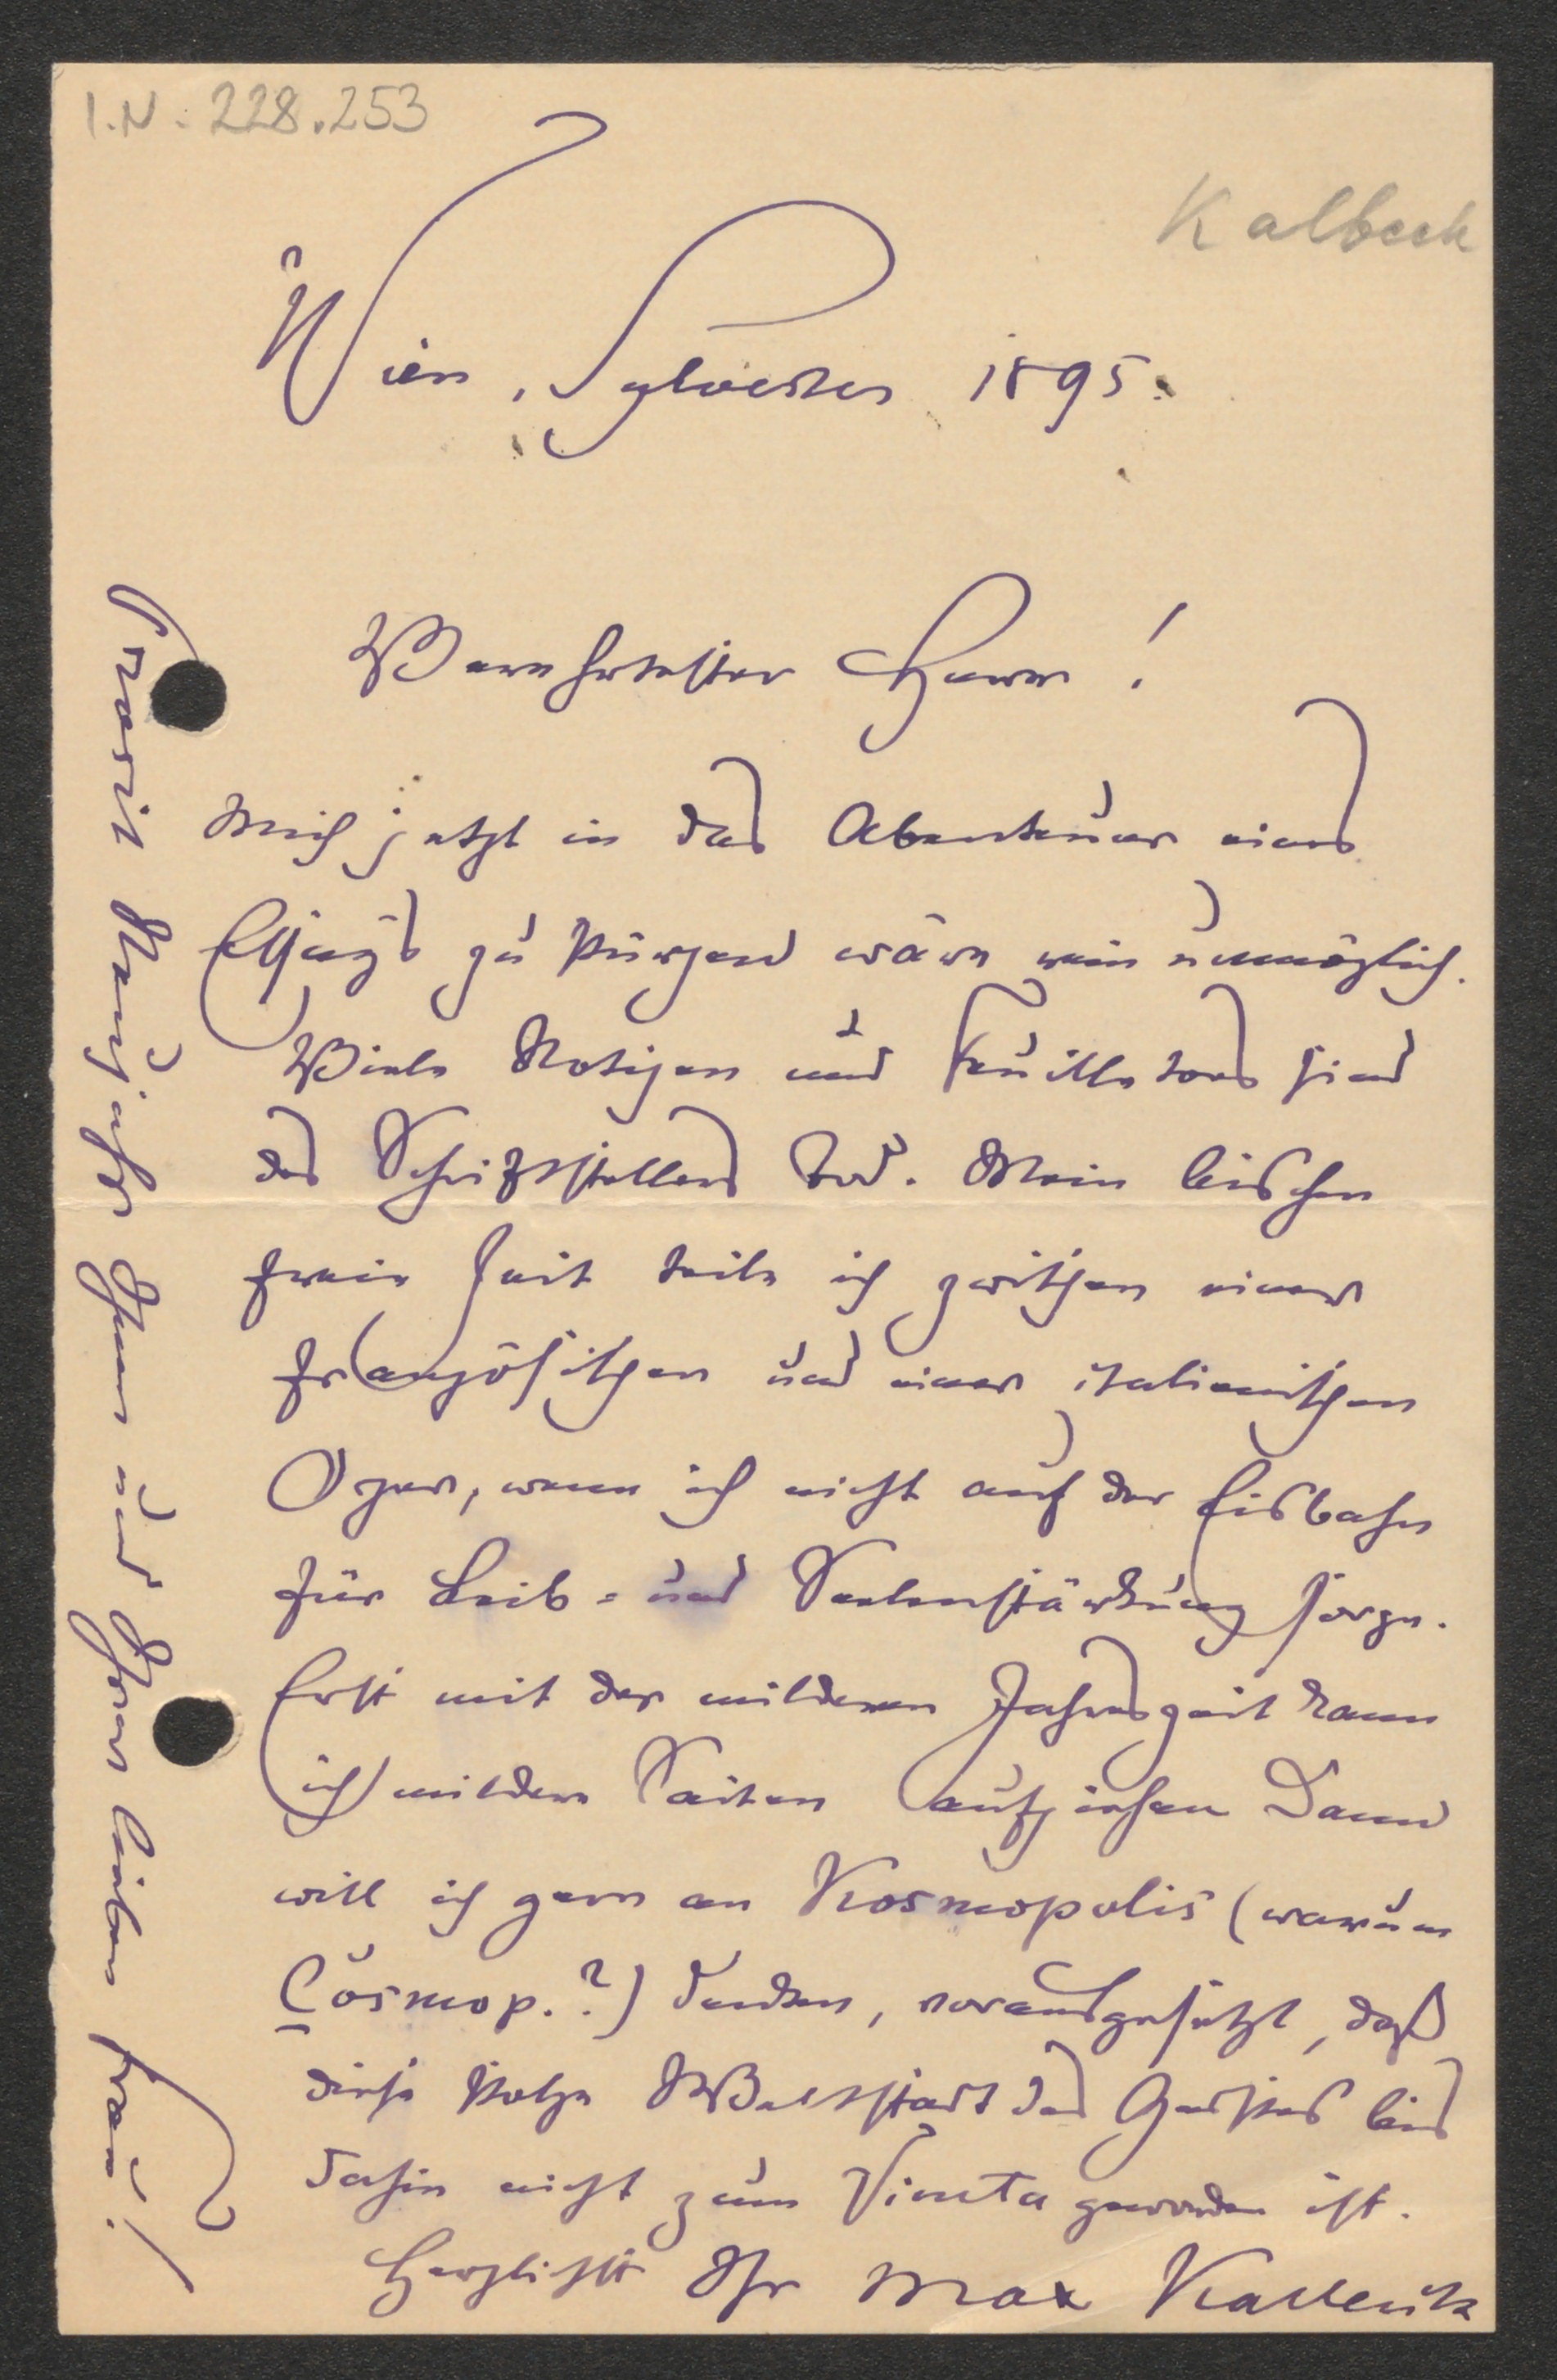 I.N. 228.253
Kalbeck
Wien, Sylvester 1895.
Verehrtester Herr!
Mich jetzt in das Abenteuer eines
Essays zu stürzen wäre mir unmöglich.
Viele Notizen und Feuilletons sind
des Schriftstellers Tod. Mein bischen
freie Zeit teile ich zwischen einer
französischen und einer italienischen
Oper, wenn ich nicht auf der Eisbahn
für Leib- und Seelenstärkung sorge.
Erst mit der milderen Jahreszeit kann
ich mildere Saiten aufziehen Dann
will ich gern an Kosmopolis (warum
Cosmop.?) denken, vorausgesetzt, daß
diese stolze Weltstadt des Geistes bis
dahin nicht zum Vineta geworden ist.
Herzlichst Ihr Max Kalbeck
Prosit Neujahr Ihnen und Ihrer lieben Frau!